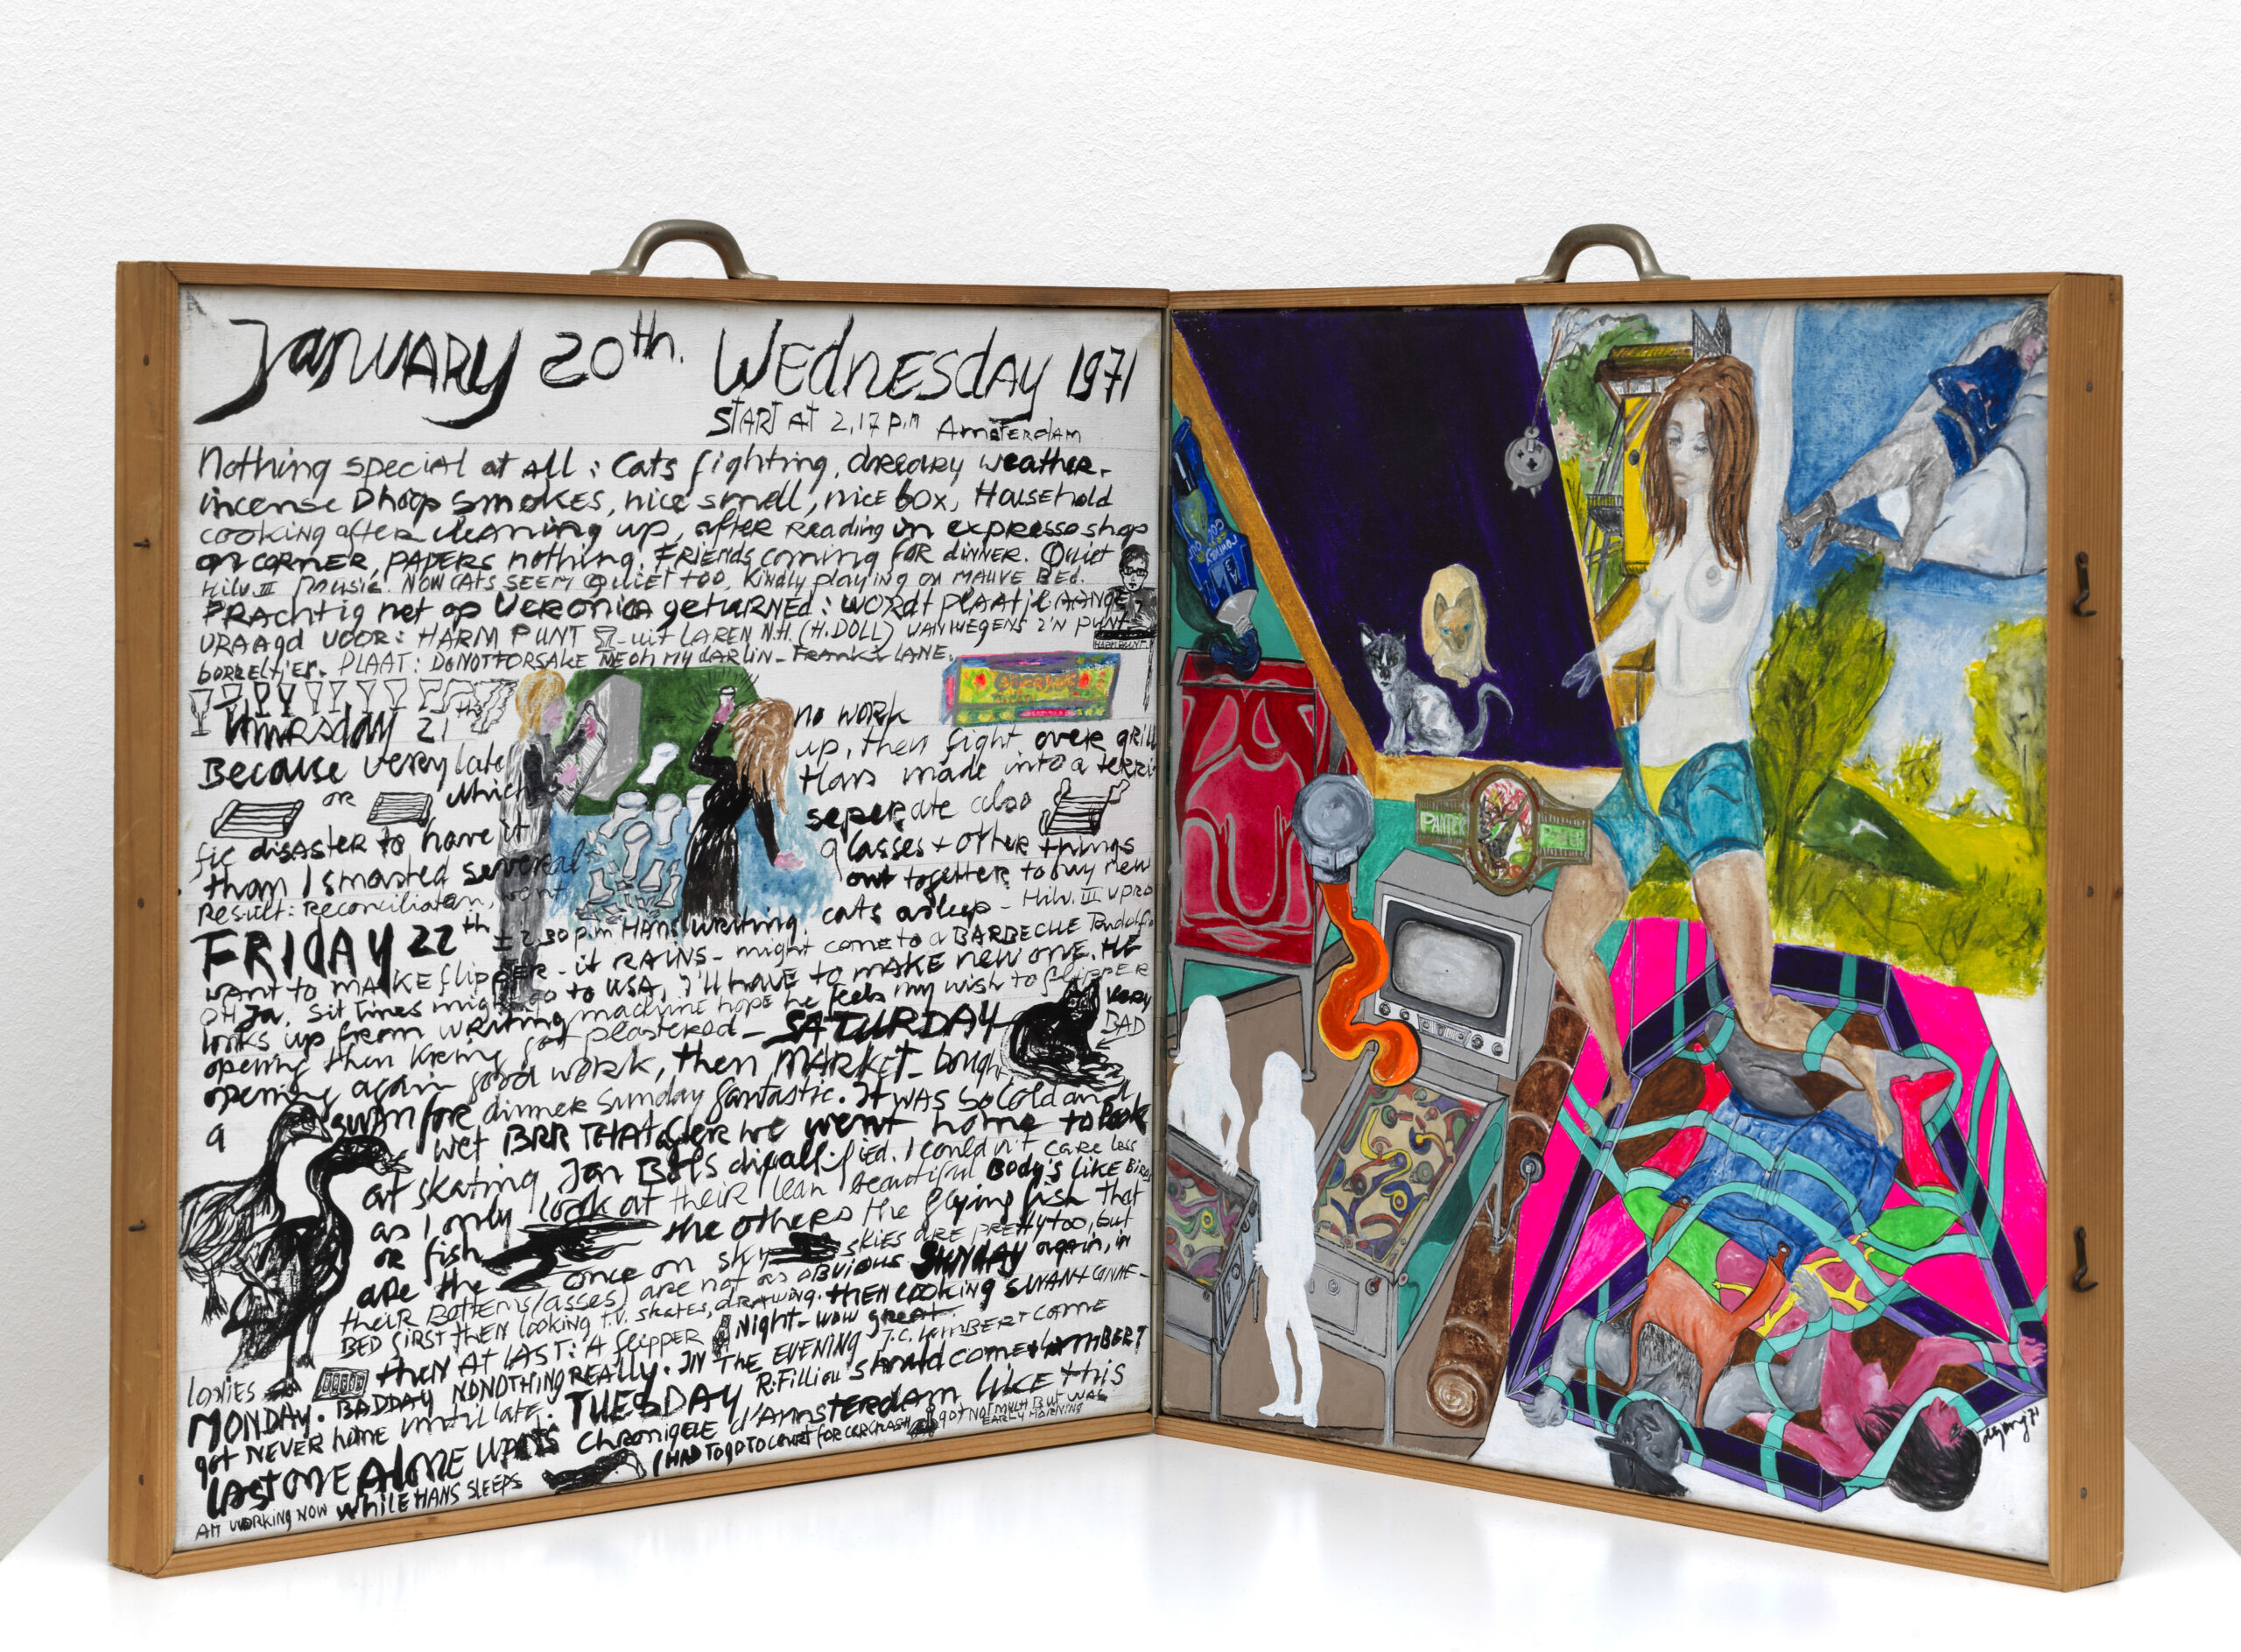 January 20th. Wednesday 1971
START AT 2,17 P.M Amsterdam
Nothing special at all : Cats fighting, dreary weather.
incense Dhoop smokes, nice smell, nice box, Household
cooking after cleaning up, after Reading in expresso shop
on CORNER, PAPERS nothing. FRIENDS coming FOR dinner. Quiet
Hilv. III music. NOW CATS SEEM QUIET TOO, Kindly playing on MAUVE BED.
PRAchtig net op VERONICA geturned : WORdt PLAAtje AANGE
VRAAgd VOOR : HARM PUNT uit LAREN N.H. (H. DOLL) VANWEGENS Z'N PUNT
borreltjes. PLAAT : DO NOT FORSAKE ME oh my dARLIN - Frankie LANE.
HARM PUNT
Thursday 21th
no work
Because very late up, then fight over grill
or which Hans made into a terri
fic disaster to have it seperate also
than I smashed several glasses + other things
Result: Reconciliation, went out together to buy new
FRIDAY 22th ± 2.30 p.m HANS writing. cats asleep - Hilv. III upro
want to MAKE flipper - it RAINS - might come to a BARBECUE
OH Ja. Sit Times might go to USA, I'll have to MAKE new one. HE
looks up from writing machine hope he feels my wish to flipper
opening then
opening again good work, then MARKET - bought
plastered - SATURDAY
VERY BAD
a swan for dinner Sunday fantastic. It was so Cold and
wet BRR THAT after we went home to look
at skating Jan Bols disqualified. I couldn't care less
as I only look at their lean beautiful Body's like Birds
or fish the others the flying fish that
are the once on sky skies are pretty too, but
their Bottems (asses) are not as obvious. SUNDAY again, in
BED first then looking T.V. skates, drawing. then cooking SWAN
then AT LAST : A flipper Night - wow great
lonies
MONDAY. BADDAY NONOTHING REALLY. IN THE EVENING J.C. LAMBERT COME
got NEVER home until late. TUESDAY R. Filliou should come + LAMBERT
LAST ONE ALONE WANTS Chronique d'Amsterdam like this
AM WORKING NOW while HANS SLEEPS I HAD TO GO TO COURT FOR CAR CRASH got NOT MUCH BUT WAS
EARLY MORNING
PANTER
PANTER
dejong 71